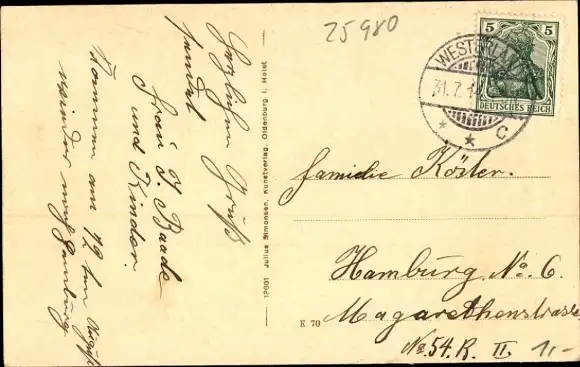 25980
5 5
DEUTSCHES REICH
WESTERLAND
31.7.1
* * C
Herzlichen Gruß
sendet
Frau J. Baade
und Kinder.
Kommen am 12ten August
wieder nach Hamburg
12901 Julius Simonsen, Kunstverlag, Oldenburg i. Holst
Familie Köster.
Hamburg No. 6.
Magarethenstrasse
No. 54. R. II.
E 70
1,-